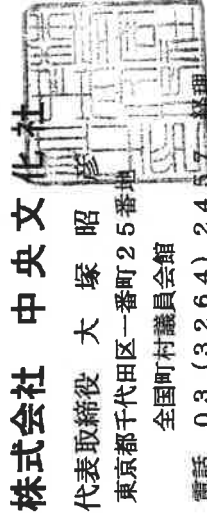 株式会社 中央文化社
代表取締役 大塚昭彦
東京都千代田区一番町25番地
全国町村議員会館
電話 03(3264)2457 経理